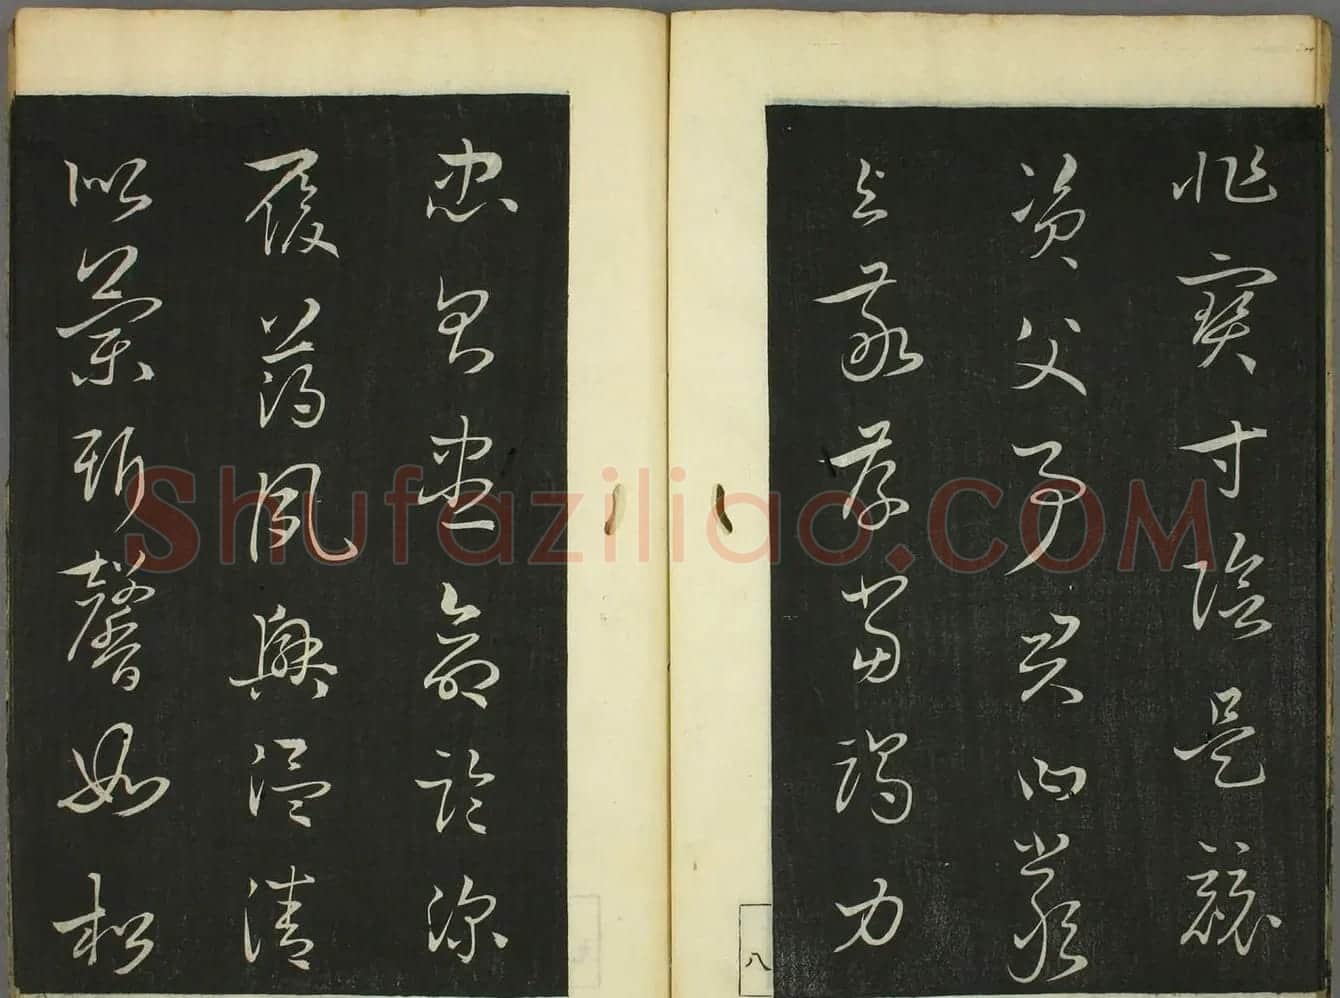 非寶寸陰是競
資父事君曰嚴
與敬孝當竭力
八
忠則盡命臨深
履薄夙興溫清
似蘭斯馨如松
Shufaziliao.COM